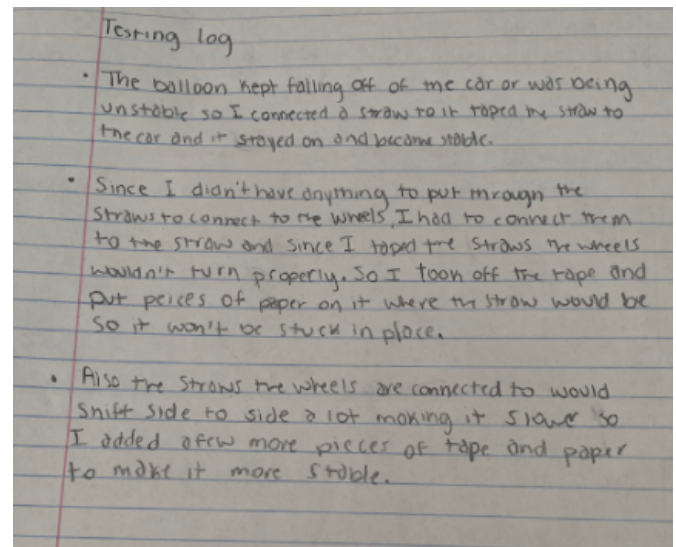 Testing log
• The balloon kept falling off of the car or was being
unstable so I connected a straw to it taped the straw to
the car and it stayed on and became stable.
• Since I didn't have anything to put through the
straws to connect to the wheels, I had to connect them
to the straw and since I taped the straws the wheels
wouldn't turn properly. So I took off the tape and
put peices of paper on it where the straw would be
so it won't be stuck in place.
• Also the straws the wheels are connected to would
shift side to side a lot making it slower so
I added a few more pieces of tape and paper
to make it more stable.